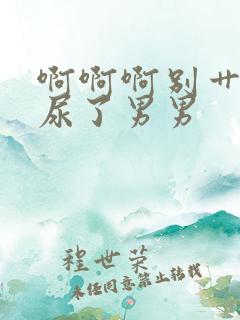 啊啊啊别艹
尿了男男
程世荣
未经同意禁止转载